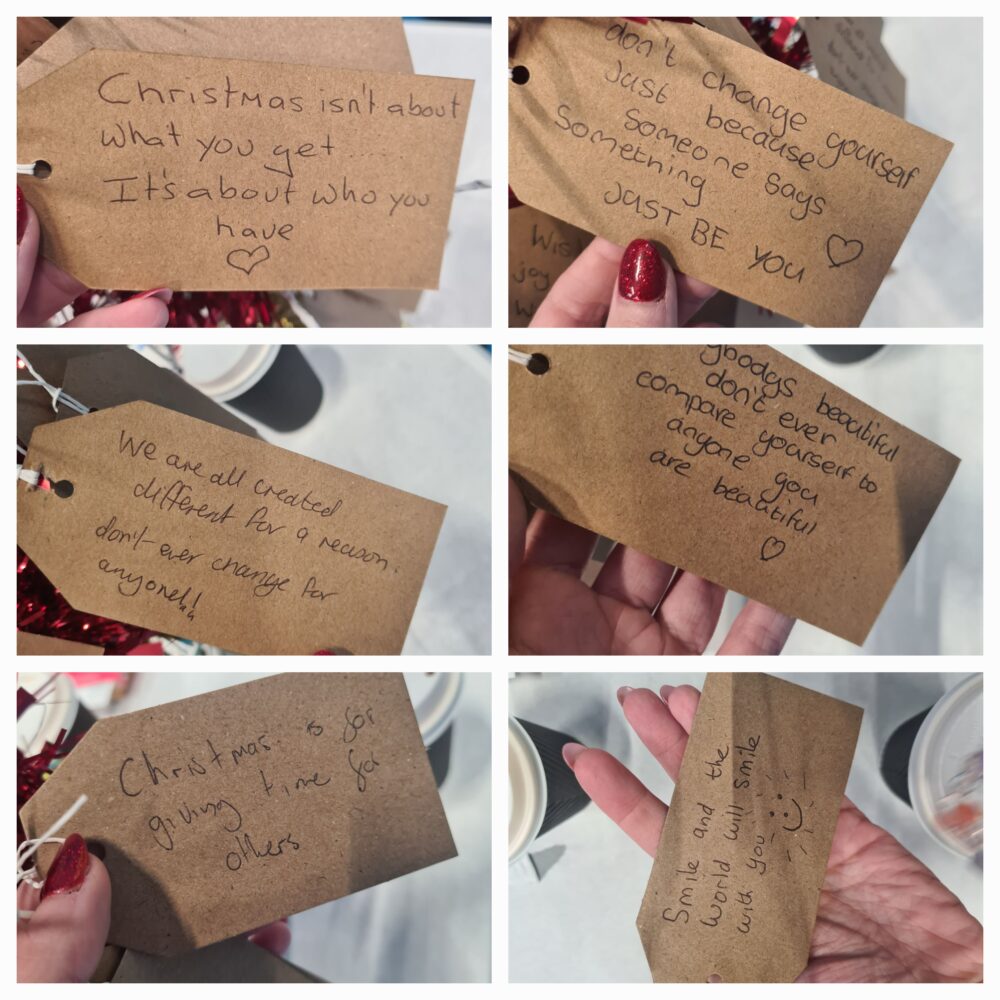 Christmas isn't about
what you get......
It's about who you
have
don't change yourself
Just because
Someone says
Something
JUST BE YOU
Wish
joy
We are all created
different for a reason.
don't ever change for
anyone!!
ybodys beautiful
don't ever
compare yourself to
anyone you
are beautiful
Christmas is for
giving time for
others
Smile and the
World will smile
with you